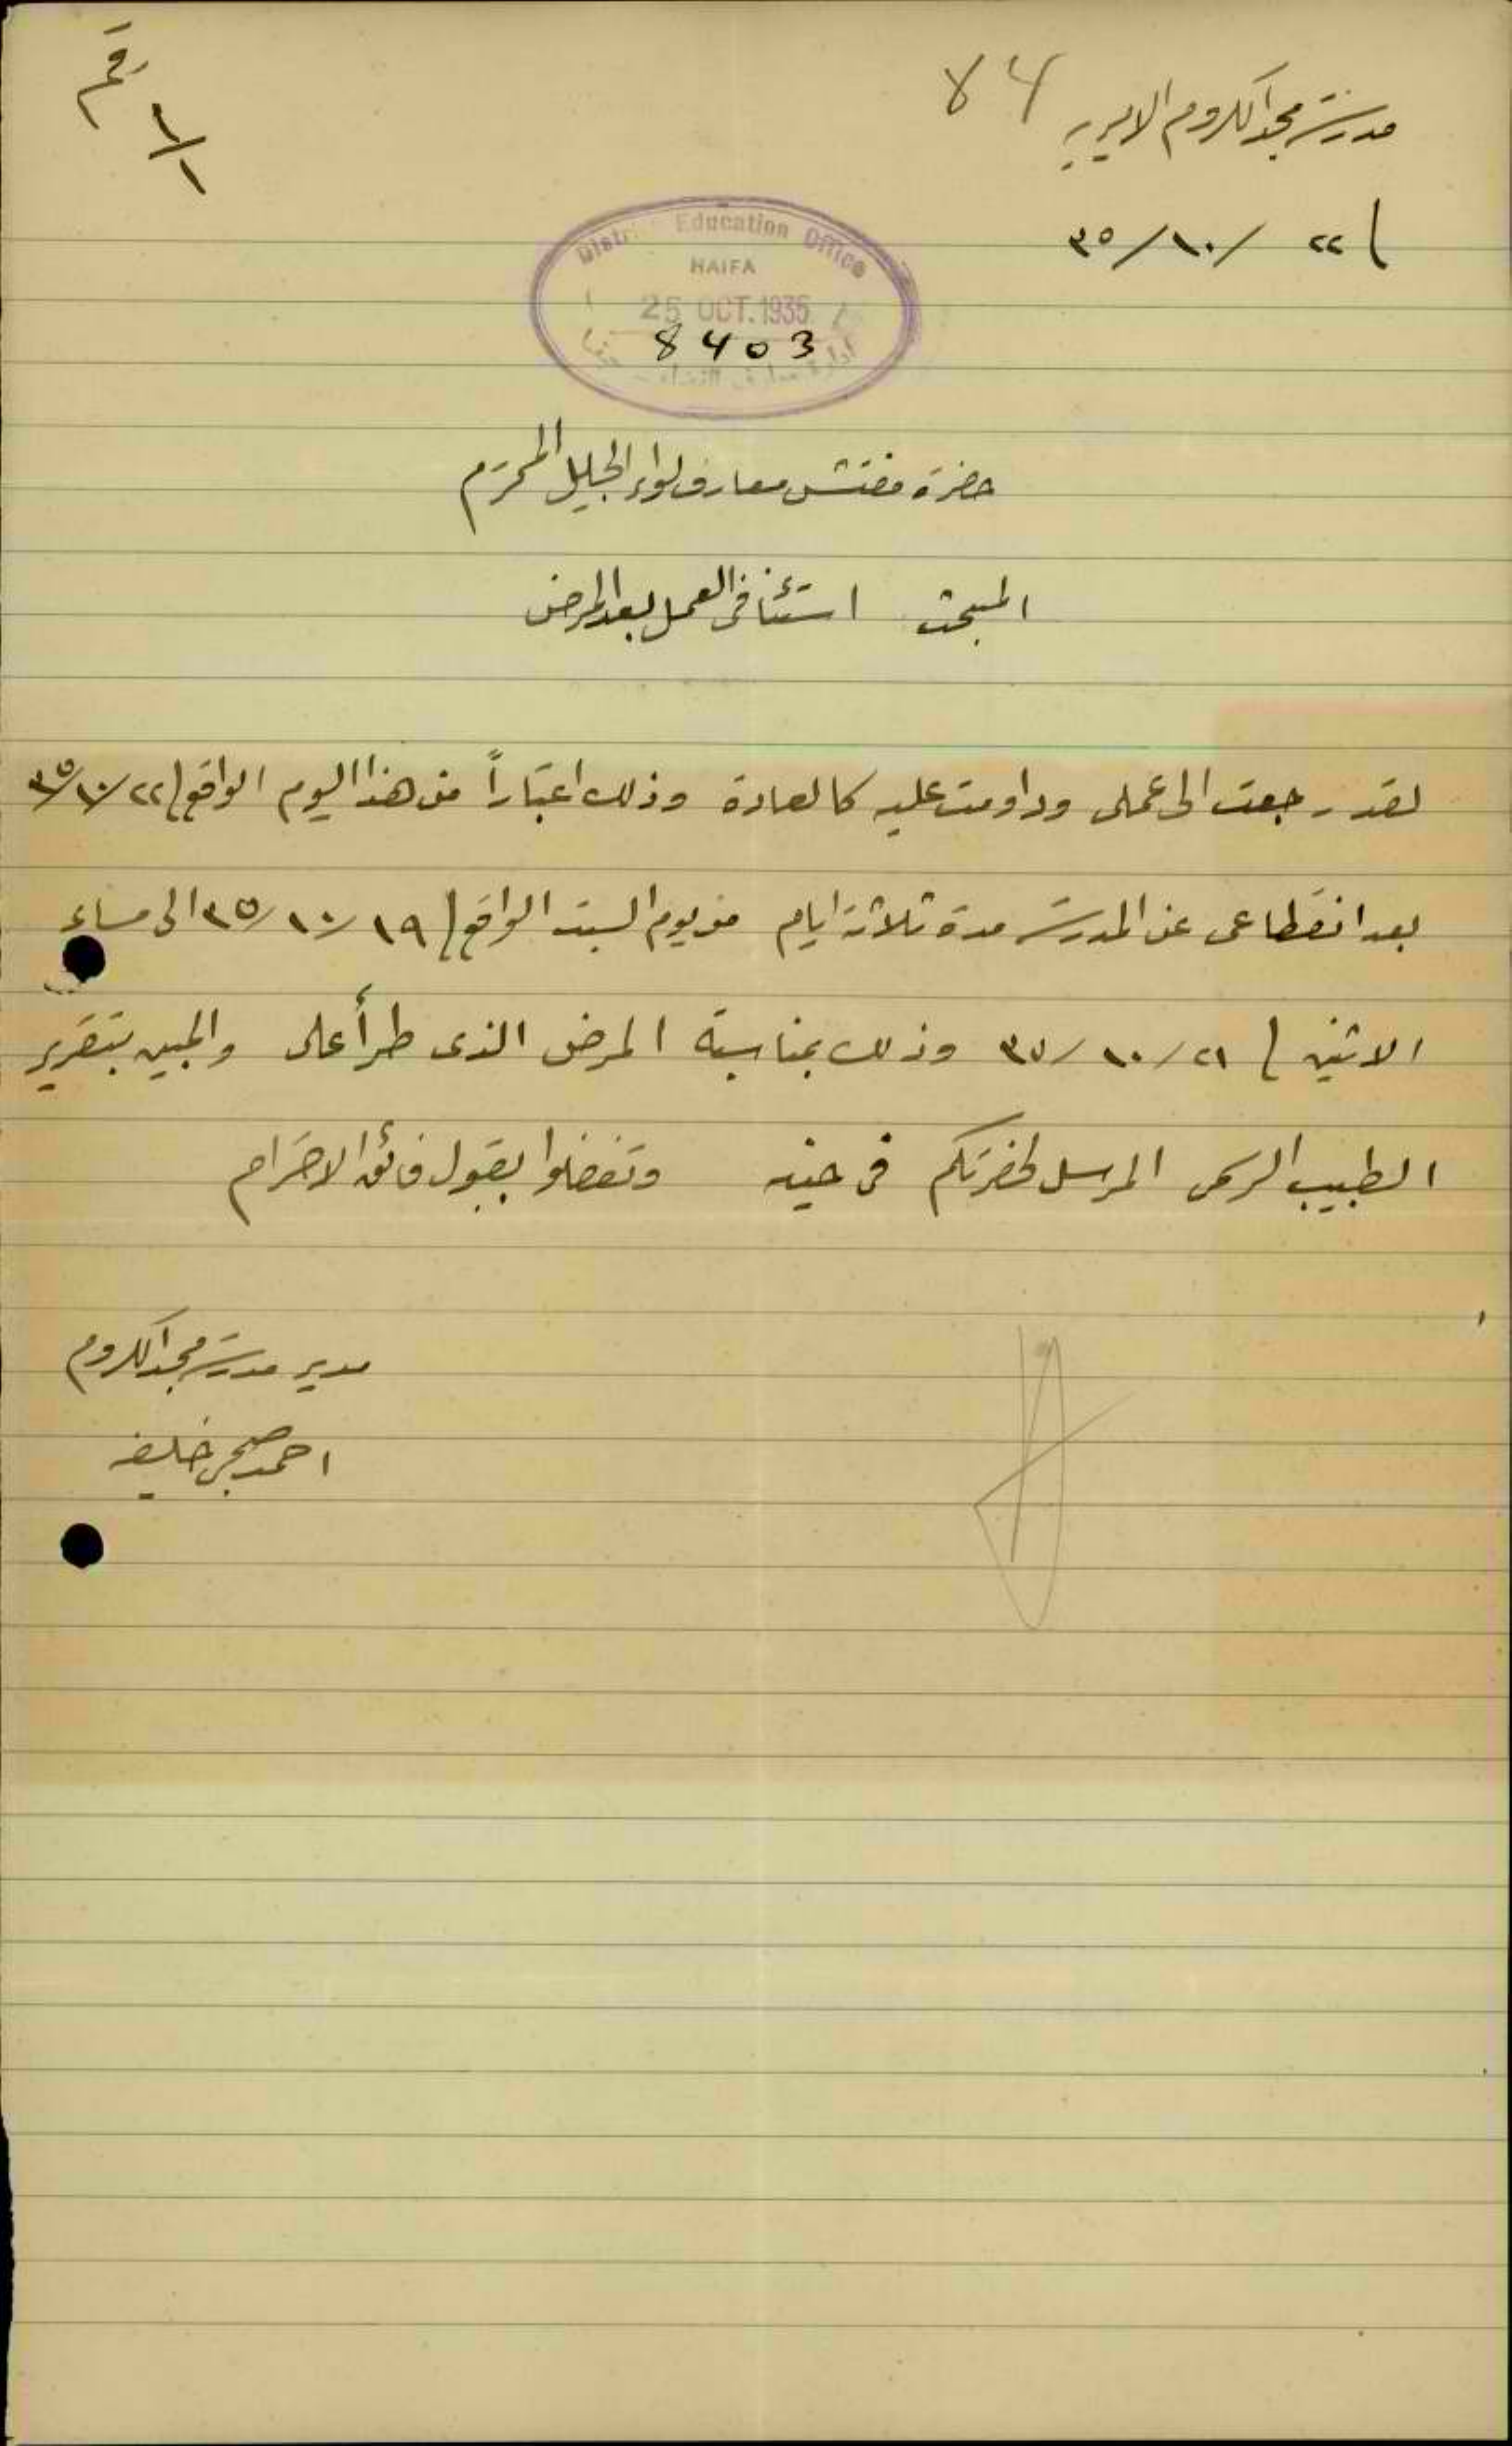 مدرسة مجد الكروم الاميرية
84
رقم
١/١
٢٢/١٠/٣٥
District Education Office
HAIFA
25 OCT. 1935
8403
ادارة معارف اللواء حيفا
حضرة مفتش معارف لواء الجليل المحترم
المبحث استئنافي العمل بعد المرض
لقد رجعت الى عملي وداومت عليه كالعادة وذلك اعتباراً من هذا اليوم الواقع في ٢٢/١٠/٣٥
بعد انقطاعي عن المدرسة مدة ثلاثة ايام من يوم السبت الواقع في ١٩/١٠/٣٥ الى مساء
الاثنين في ٢١/١٠/٣٥ وذلك بمناسبة المرض الذي طرأ علي والمبين بتقرير
الطبيب الرسمي المرسل لحضرتكم في حينه وتفضلوا بقبول فائق الاحترام
مدير مدرسة مجد الكروم
احمد صبحي خليفه